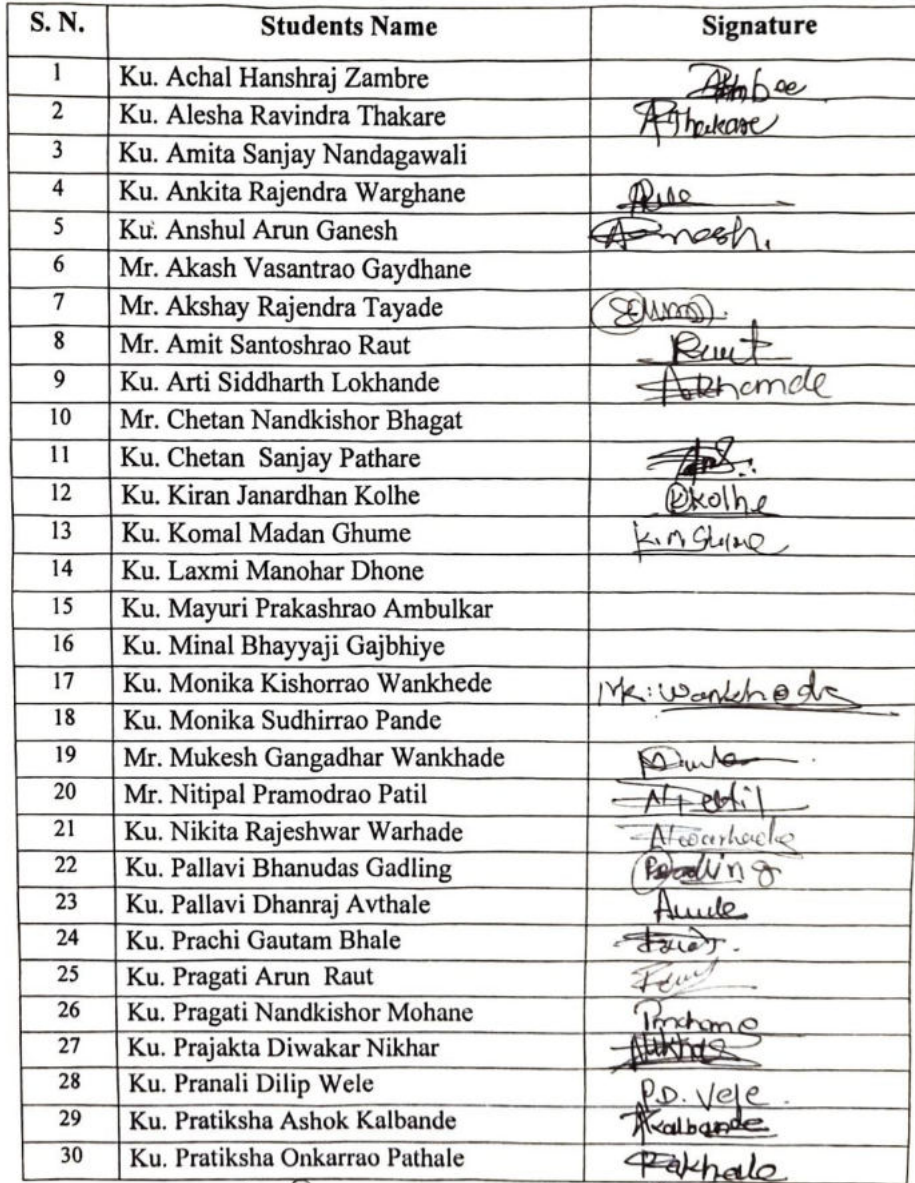 S. N. Students Name Signature
1 Ku. Achal Hanshraj Zambre
2 Ku. Alesha Ravindra Thakare AThakare
3 Ku. Amita Sanjay Nandagawali
4 Ku. Ankita Rajendra Warghane
5 Ku. Anshul Arun Ganesh
6 Mr. Akash Vasantrao Gaydhane
7 Mr. Akshay Rajendra Tayade
8 Mr. Amit Santoshrao Raut Raut
9 Ku. Arti Siddharth Lokhande
10 Mr. Chetan Nandkishor Bhagat
11 Ku. Chetan Sanjay Pathare
12 Ku. Kiran Janardhan Kolhe Kkolhe
13 Ku. Komal Madan Ghume
14 Ku. Laxmi Manohar Dhone
15 Ku. Mayuri Prakashrao Ambulkar
16 Ku. Minal Bhayyaji Gajbhiye
17 Ku. Monika Kishorrao Wankhede
18 Ku. Monika Sudhirrao Pande
19 Mr. Mukesh Gangadhar Wankhade
20 Mr. Nitipal Pramodrao Patil
21 Ku. Nikita Rajeshwar Warhade
22 Ku. Pallavi Bhanudas Gadling
23 Ku. Pallavi Dhanraj Avthale
24 Ku. Prachi Gautam Bhale
25 Ku. Pragati Arun Raut
26 Ku. Pragati Nandkishor Mohane
27 Ku. Prajakta Diwakar Nikhar
28 Ku. Pranali Dilip Wele P.D. Vele.
29 Ku. Pratiksha Ashok Kalbande Akalbande
30 Ku. Pratiksha Onkarrao Pathale